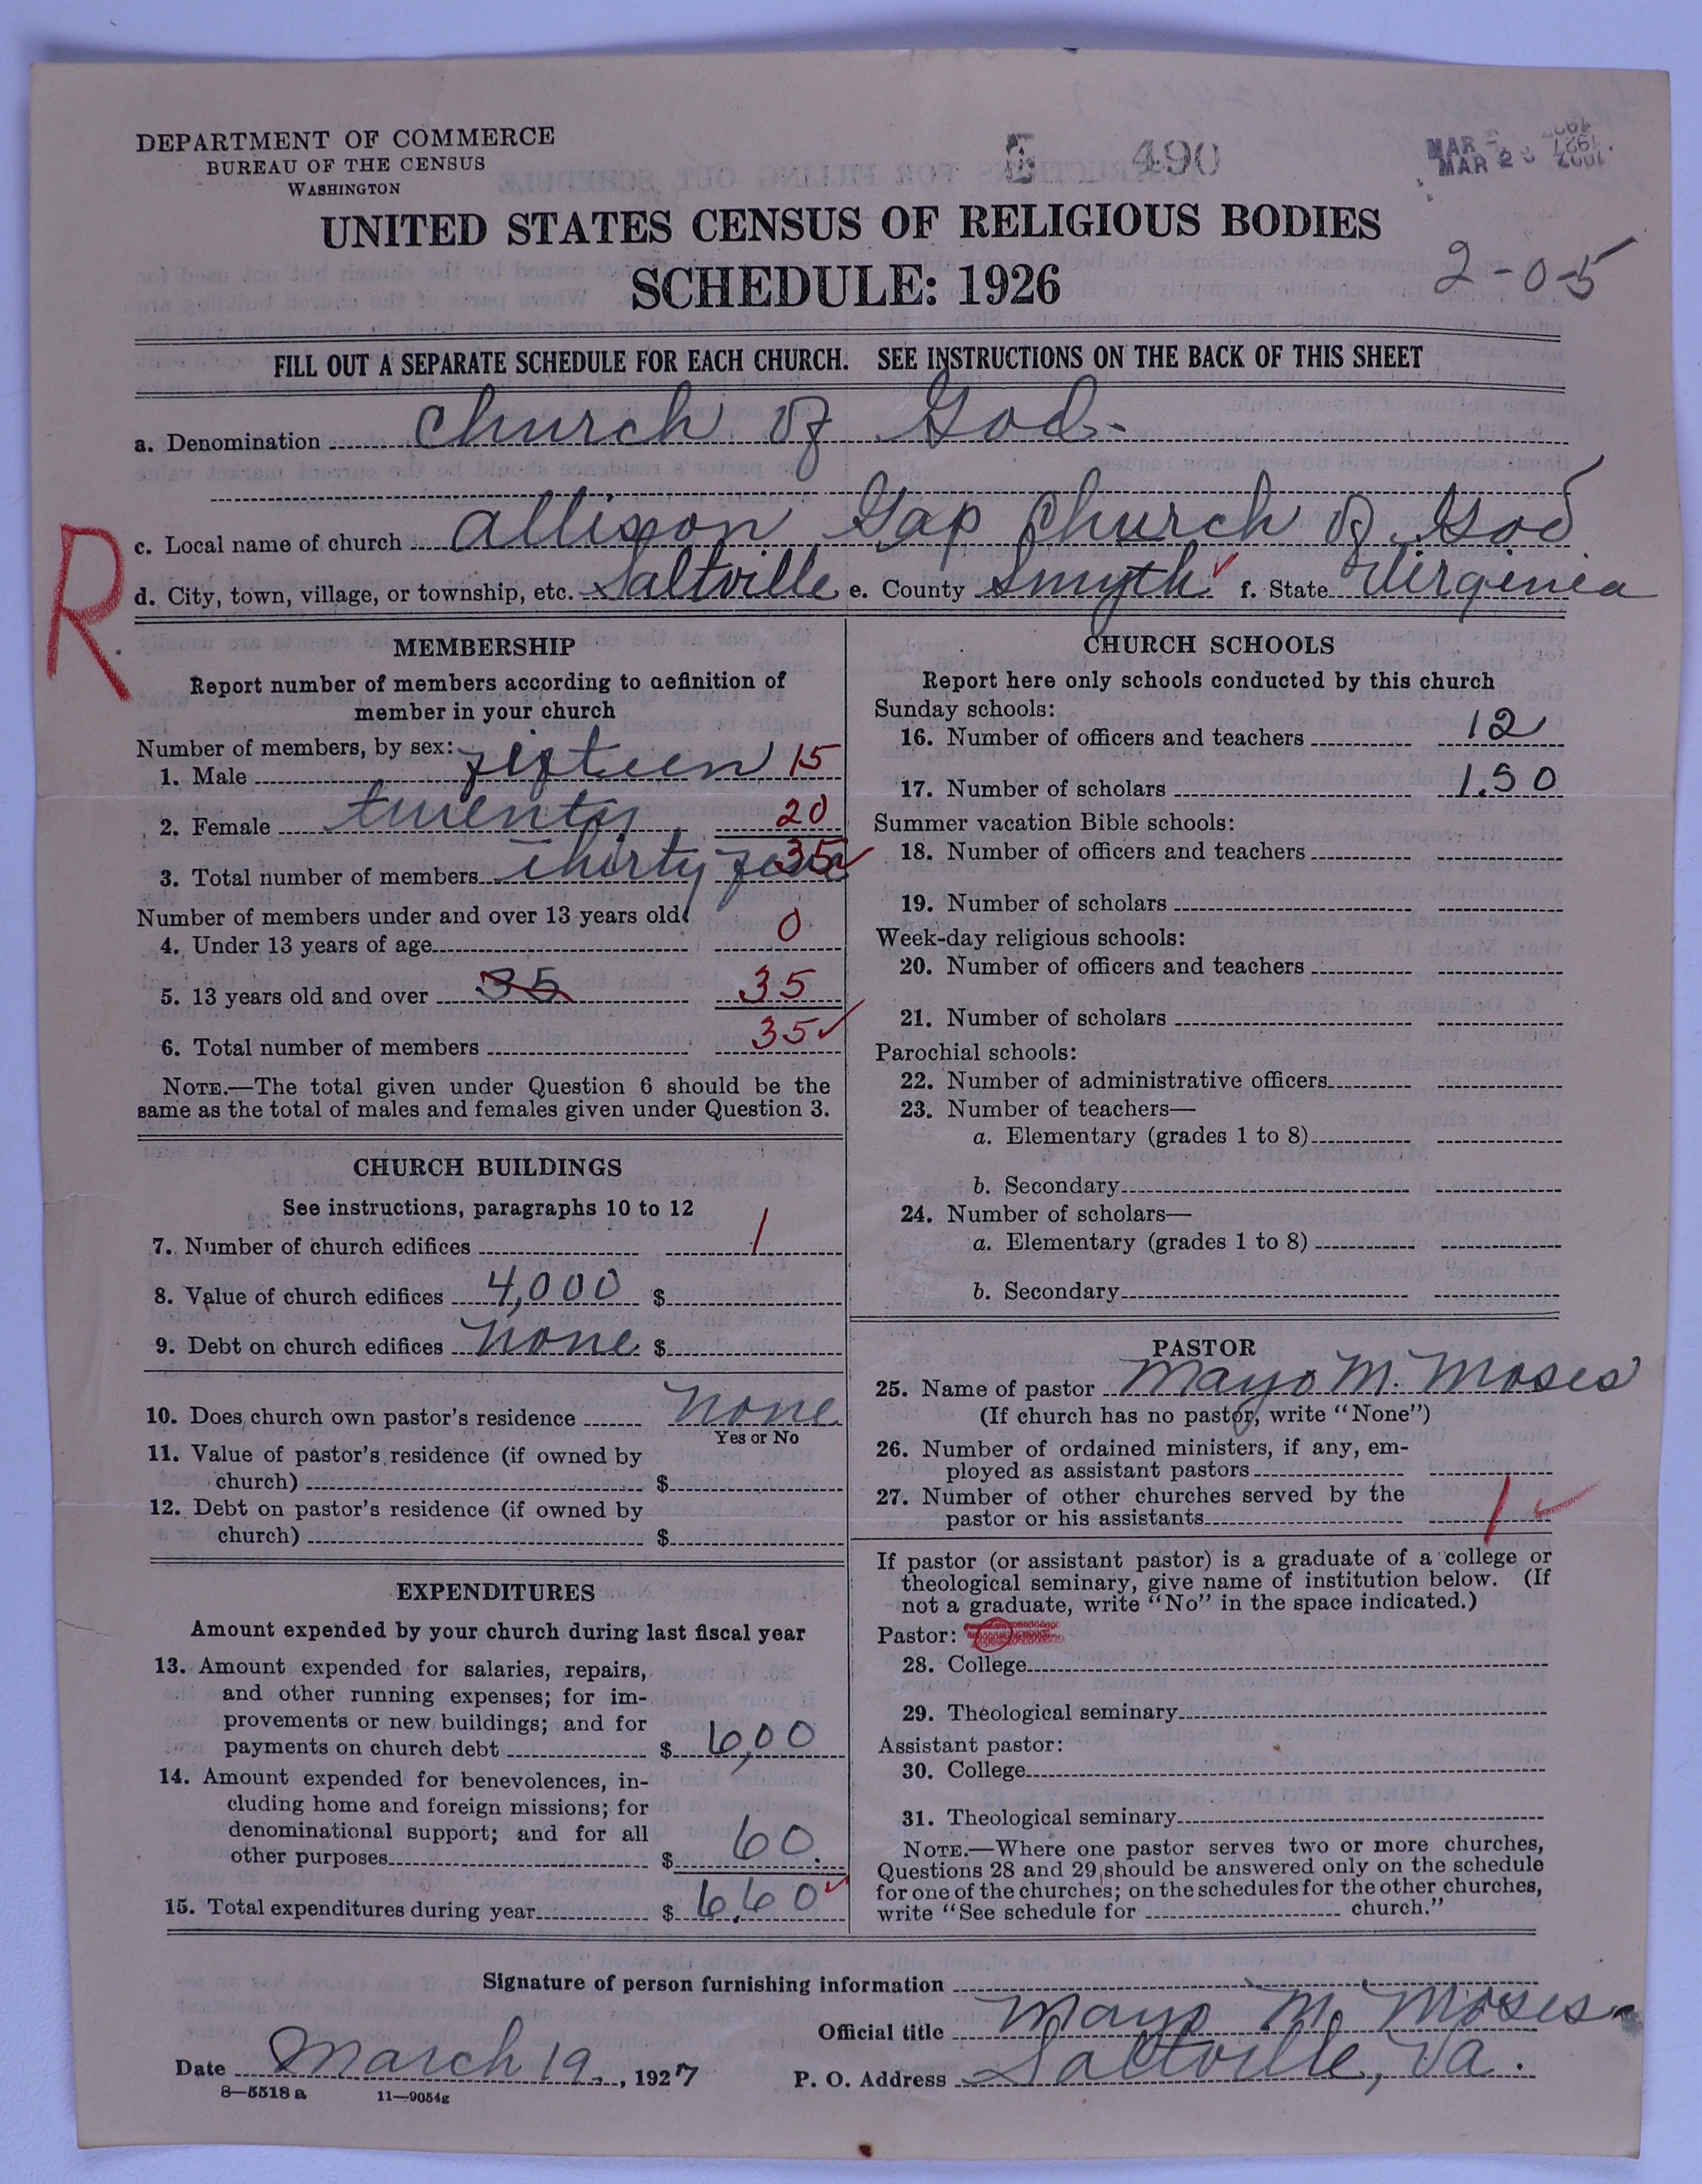 DEPARTMENT OF COMMERCE
BUREAU OF THE CENSUS
WASHINGTON
490
MAR 1927
MAR 2 1927
UNITED STATES CENSUS OF RELIGIOUS BODIES
SCHEDULE: 1926
2-0-5
FILL OUT A SEPARATE SCHEDULE FOR EACH CHURCH. SEE INSTRUCTIONS ON THE BACK OF THIS SHEET
a. Denomination Church of God
c. Local name of church Allison Gap Church of God
d. City, town, village, or township, etc. Saltville e. County Smyth f. State Virginia
R
MEMBERSHIP
Report number of members according to definition of
member in your church
Number of members, by sex:
1. Male fifteen 15
2. Female twenty 20
3. Total number of members thirty five 35
Number of members under and over 13 years old
4. Under 13 years of age 0
5. 13 years old and over 35 35
6. Total number of members 35
NOTE.—The total given under Question 6 should be the
same as the total of males and females given under Question 3.
CHURCH BUILDINGS
See instructions, paragraphs 10 to 12
7. Number of church edifices 1
8. Value of church edifices 4,000 $
9. Debt on church edifices None $
10. Does church own pastor's residence None
Yes or No
11. Value of pastor's residence (if owned by
church) $
12. Debt on pastor's residence (if owned by
church) $
EXPENDITURES
Amount expended by your church during last fiscal year
13. Amount expended for salaries, repairs,
and other running expenses; for im-
provements or new buildings; and for
payments on church debt $ 6,00
14. Amount expended for benevolences, in-
cluding home and foreign missions; for
denominational support; and for all
other purposes $ 60.
15. Total expenditures during year $ 6,60
CHURCH SCHOOLS
Report here only schools conducted by this church
Sunday schools:
16. Number of officers and teachers 12
17. Number of scholars 1.50
Summer vacation Bible schools:
18. Number of officers and teachers
19. Number of scholars
Week-day religious schools:
20. Number of officers and teachers
21. Number of scholars
Parochial schools:
22. Number of administrative officers
23. Number of teachers—
a. Elementary (grades 1 to 8)
b. Secondary
24. Number of scholars—
a. Elementary (grades 1 to 8)
b. Secondary
PASTOR
25. Name of pastor Mayo M. Moses
(If church has no pastor, write "None")
26. Number of ordained ministers, if any, em-
ployed as assistant pastors
27. Number of other churches served by the
pastor or his assistants 1
If pastor (or assistant pastor) is a graduate of a college or
theological seminary, give name of institution below. (If
not a graduate, write "No" in the space indicated.)
Pastor:
28. College
29. Theological seminary
Assistant pastor:
30. College
31. Theological seminary
NOTE.—Where one pastor serves two or more churches,
Questions 28 and 29 should be answered only on the schedule
for one of the churches; on the schedules for the other churches,
write "See schedule for church."
Signature of person furnishing information
Official title Mayo M. Moses
Date March 19, 1927 P. O. Address Saltville, Va.
8—5518 a 11—9054g